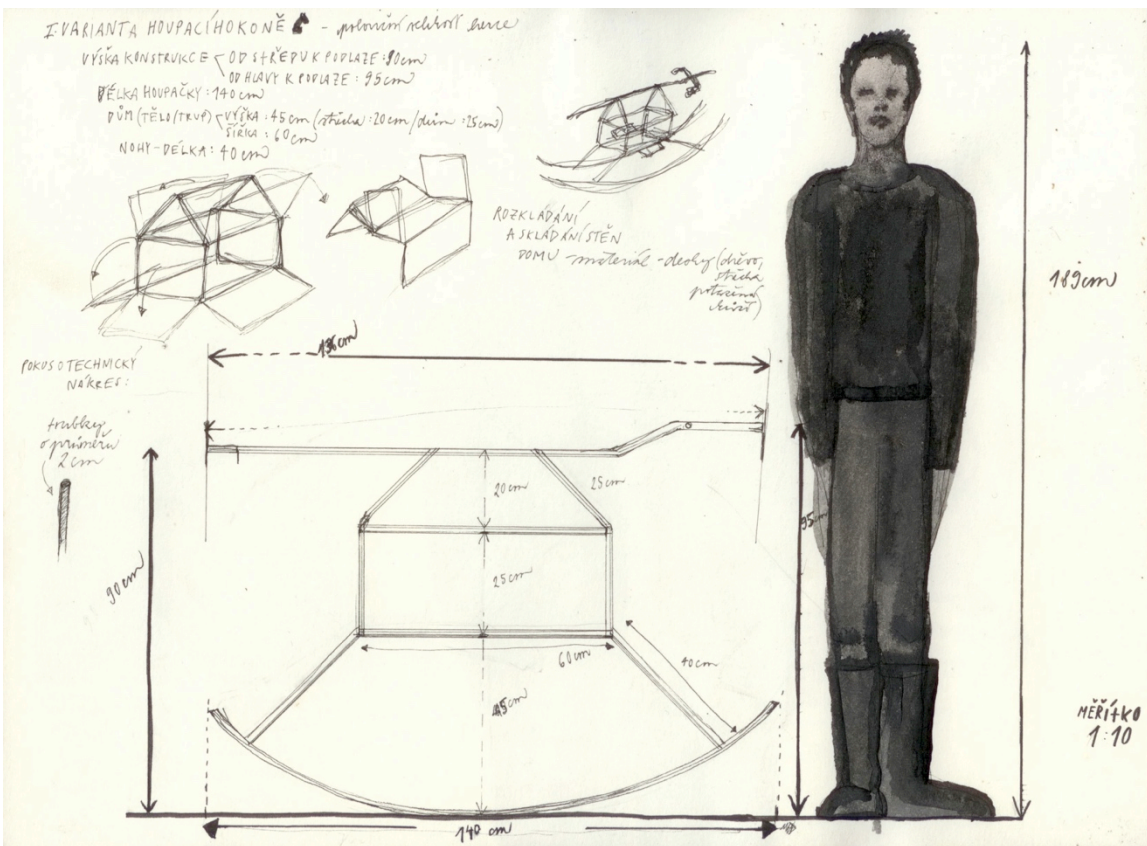 I. VARIANTA HOUPACÍHO KONĚ - poloviční velikost herce
VÝŠKA KONSTRUKCE OD STŘEDU K PODLAZE: 90cm
OD HLAVY K PODLAZE: 95cm
DÉLKA HOUPAČKY: 140cm
DŮM (TĚLO/TRUP) VÝŠKA: 45cm (střecha: 20cm/dům: 25cm)
ŠÍŘKA: 60cm
NOHY - DÉLKA: 40cm
ROZKLÁDÁNÍ
A SKLÁDÁNÍ STĚN
DOMU - materiál - desky (dřevo,
střecha
potažená
189cm
136cm
POKUS O TECHNICKÝ
NÁKRES:
trubky
o průměru
2cm
20cm
25cm
95cm
25cm
90cm
60cm
40cm
45cm
MĚŘÍTKO
1:10
140 cm